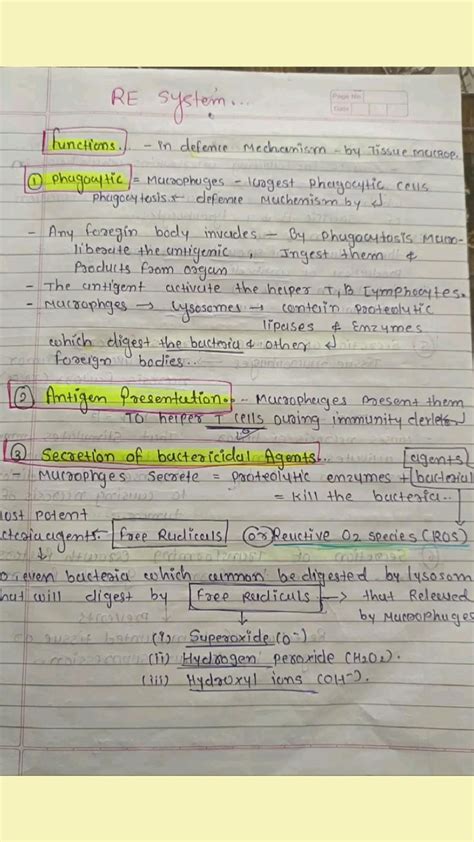 RE System...
Page No.
Date
Functions.. - in defence Mechanism - by Tissue Macrop.
① Phagocytic = Macrophages - largest phagocytic cells
phagocytosis defence Mechenism by ↲
- Any foregin body invades - By Phagocytosis Macro-
liberate the antigenic, Ingest them &
Products from organ
- The antigent activate the helper T, B lymphocytes.
- Macrophges → Lysosomes → contain proteolytic
lipases & Enzymes
which digest the bacteria & other ↲
foreign bodies..
② Antigen Presentation.. - Macrophages Present them
TO helper T cells during immunity
③ Secretion of bactericidal Agents... agents
- Macrophges Secrete = proteolytic enzymes + bacterial
= Kill the bacteria..
most potent
agents. Free Radicals (or) Reactive O2 species (ROS)
↓
even bacteria which cannon be digested by lysosom
that will digest by Free Radicals → that Released
by Macrophages
(i) Superoxide (O⁻)
(ii) Hydrogen peroxide (H2O2).
(iii) Hydroxyl ions (OH⁻).